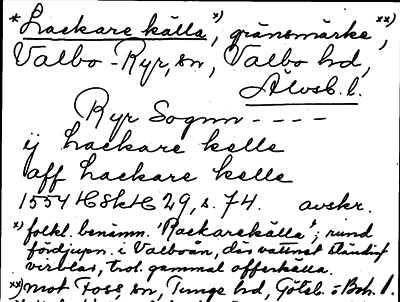 *Lackare källa*), gränsmärke**),
Valbo-Ryr, sn, Valbo hd,
Älvsb. l.
Ryr Sognn ----
ij Lackare kelle
aff Lackare kelle
1554 29, s. 74. avskr.
*) folkl. benämn. 'Rackarekälla'; rund
fördjupn. i Valboån, där vattnet ständigt
virvlas, trol. gammal offerkälla.
**) mot Foss, sn, Tunge hd, Göteb. o Boh. l.